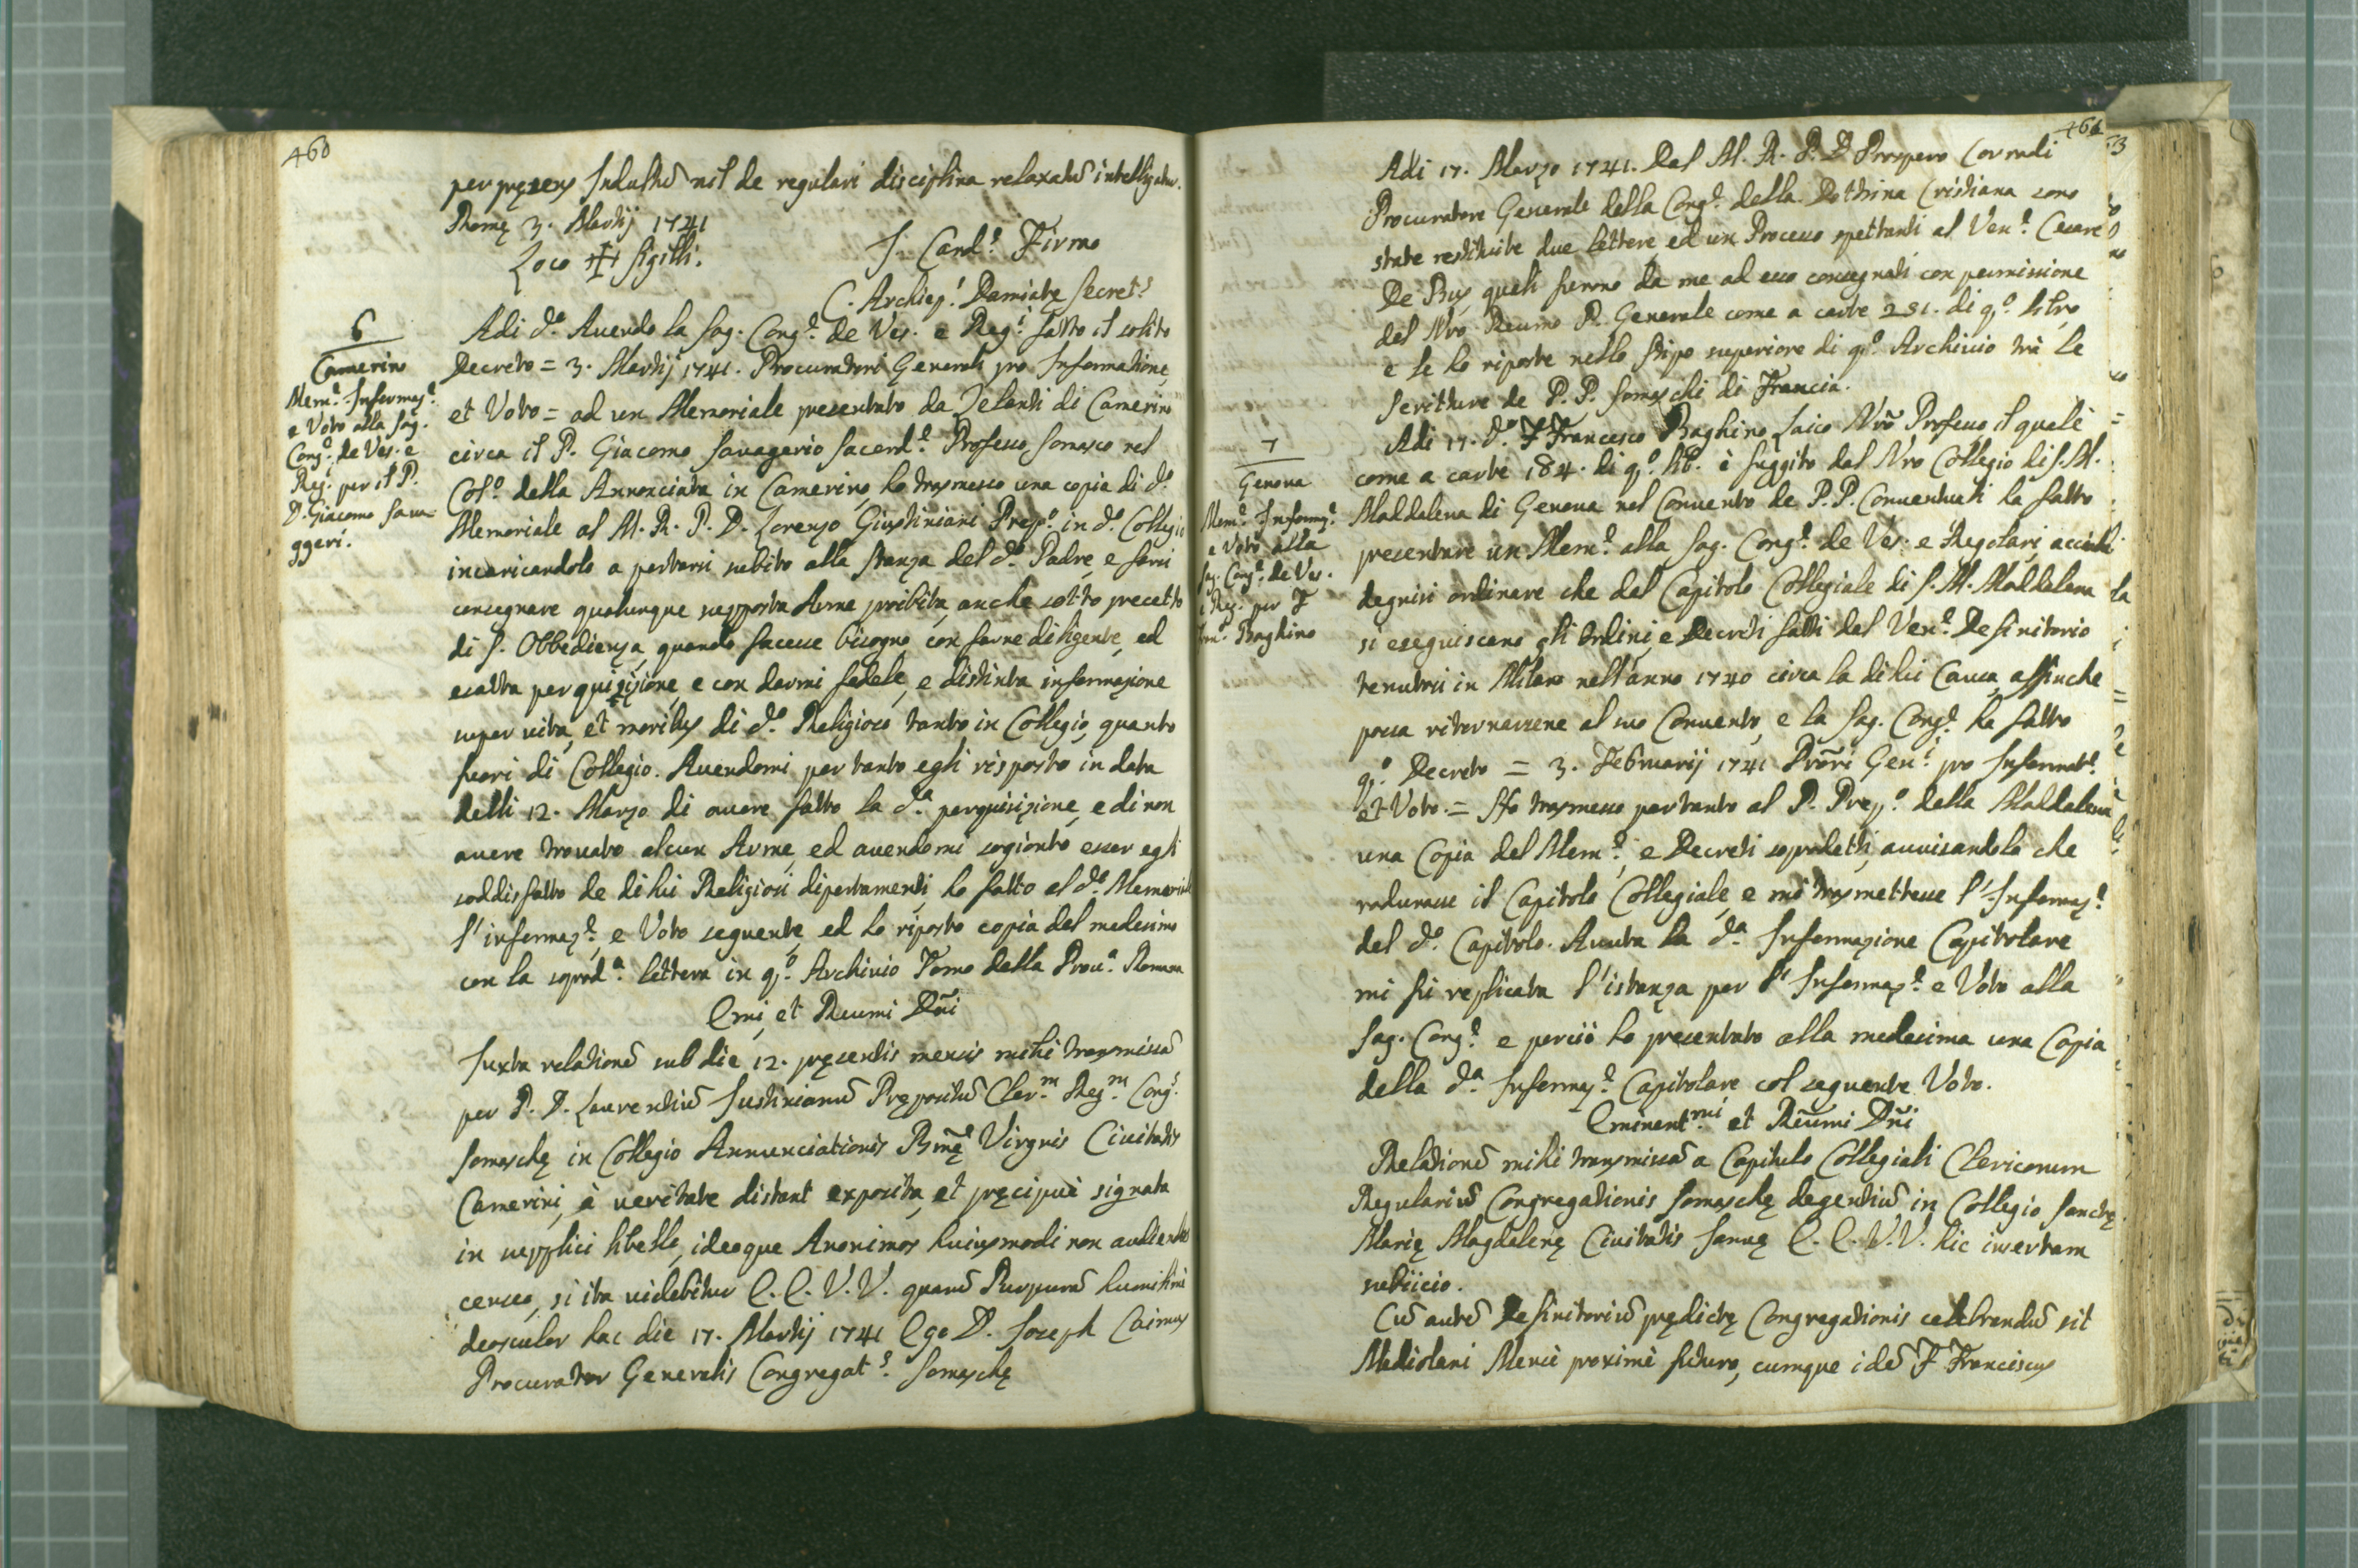 460
per pręsens Indultũ nil de regulari disciplina relaxatũ intelligatur.
Romę 3. Martij 1741
Loco ✠ Sigilli.
I. Card.^e Firmo
C. Archiep.^s Damiate Secret.^s
6
Camerino
Mem.^e Informaz.^e
e Voto alla Sag.
Cong.^e de Ves. e
Reg.^i per il P.
D. Giacomo Sava-
ggeri.
Adi d.^o Avendo la Sag. Cong.^e de Ves. e Reg.^i fatto il solito
Decreto = 3. Martij 1741. Procuratori Generali pro Informatione,
et Voto = ad un Memoriale presentato da Zelanti di Camerino
circa il P. Giacomo Savagerio Sacerd.^e Professo Somasco nel
Col.^o della Annonciata in Camerino, ho trasmesso una copia di d.^o
Memoriale al M. R. P. D. Lorenzo Giustiniani Prep.^o in d.^o Collegio
incaricandolo a portarsi subito alla stanza del d.^o Padre, e farsi
consegnare qualunque supposta Arme proibita, anche sotto precetto
di S. Obbedienza, quando facesse bisogno, con farne diligente, ed
esatta perquisizione, e con darmi fedele, e distinta informazione
super vita, et moribus di d.^o Religioso tanto in Collegio, quanto
fuori di Collegio. Avendomi per tanto egli risposto in data
delli 12. Marzo di avere fatto la d.^a perquisizione, e di non
avere trovato alcun Arme, ed avendomi sogionto esser egli
soddisfatto de di lui Religiosi diportamenti, ho fatto al d.^o Memoriale
l'informaz.^e, e Voto seguente, ed ho riposto copia del medesimo
con la soprad.^a lettera in q.^o Archivio Tomo della Prov.^a Romana
Emi, et Reumi Dñi
Juxta relationẽ sub die 12. pręsentis mensis mihi transmissã
per P. D. Laurentiũ Justinianũ Prępositũ Cler.^m Reg.^m Cong.^s
Somaschę in Collegio Annunciationis Bmę Virginis Civitatis
Camerini, à veritate distant exposita, et pręcipuè signata
in supplici libello, ideoque Anonimos huiusmodi non audiendos
censeo, si ita videbitur E. E. V. V. quarũ Purpurã humilimè
deosculor hac die 17. Martij 1741 Ego D. Joseph Caimus
Procurator Generalis Congregat.^s Somaschę
461
Adi 17. Marzo 1741. Dal M. R. P. D. Prospero Corradi
Procuratore Generale della Cong.^e della Dottrina Cristiana sono
state restituite due lettere, ed un Processo spettanti al Ven.^e Cesare
De Bus, quali furono da me ad esso consegnati con permissione
del Nro Reumo P. Generale come a carte 251. di q.^o libro
e le ho riposte nello stipo superiore di q.^o Archivio trà le
Scritture de P. P. Somaschi di Francia.
7
Genova
Mem.^e Informaz.^e
e Voto alla
Sag. Cong.^e de Ves.
e Reg. per F.
Baghino
Adi 17. d.^o F. Francesco Baghino Laico Nrõ Professo il quale
come a carte 184. di q.^o lib. è fuggito dal Nro Collegio di S. M.
Maddalena di Genova nel Convento de P. P. Conventuali ha fatto
presentare un Mem.^e alla Sag. Cong.^e de Ves. e Regolari, acciò
degnisi ordinare che dal Capitolo Collegiale di S. M. Maddalena
si eseguiscano gli ordini, e Decreti fatti dal Ven.^e Definitorio
tenutosi in Milano nell'anno 1740 circa la di lui Causa, affinche
possa ritornarsene al suo Convento, e la Sag. Cong.^e ha fatto
q.^o Decreto = 3. Februarij 1741 Prori Gen.^i pro Informat.^e
et Voto. = Ho trasmesso pertanto al P. Prep.^o della Maddalena
una Copia del Mem.^e, e Decreti sopradetti, avvisandolo che
radunasse il Capitolo Collegiale, e mi trasmettesse l'Informaz.^e
del d.^o Capitolo. Avuta la d.^a Informazione Capitolare
mi fù replicata l'istanza per l'Informaz.^e e Voto alla
Sag. Cong.^e e perciò ho presentato alla medesima una Copia
della d.^a Informaz.^e Capitolare col seguente Voto.
Eminent.^mi et Reumi Dñi
Relationẽ mihi transmissã a Capitulo Collegiali Clericorum
Regulariũ Congregationis Somaschę degentiũ in Collegio Sanctę
Marię Magdalenę Civitatis Januę E. E. V. V. hic insertam
subiicio.
Cũ autẽ Definitoriũ prędictę Congregationis celebrandũ sit
Mediolani Mense proximè futuro, cumque idẽ F. Franciscus